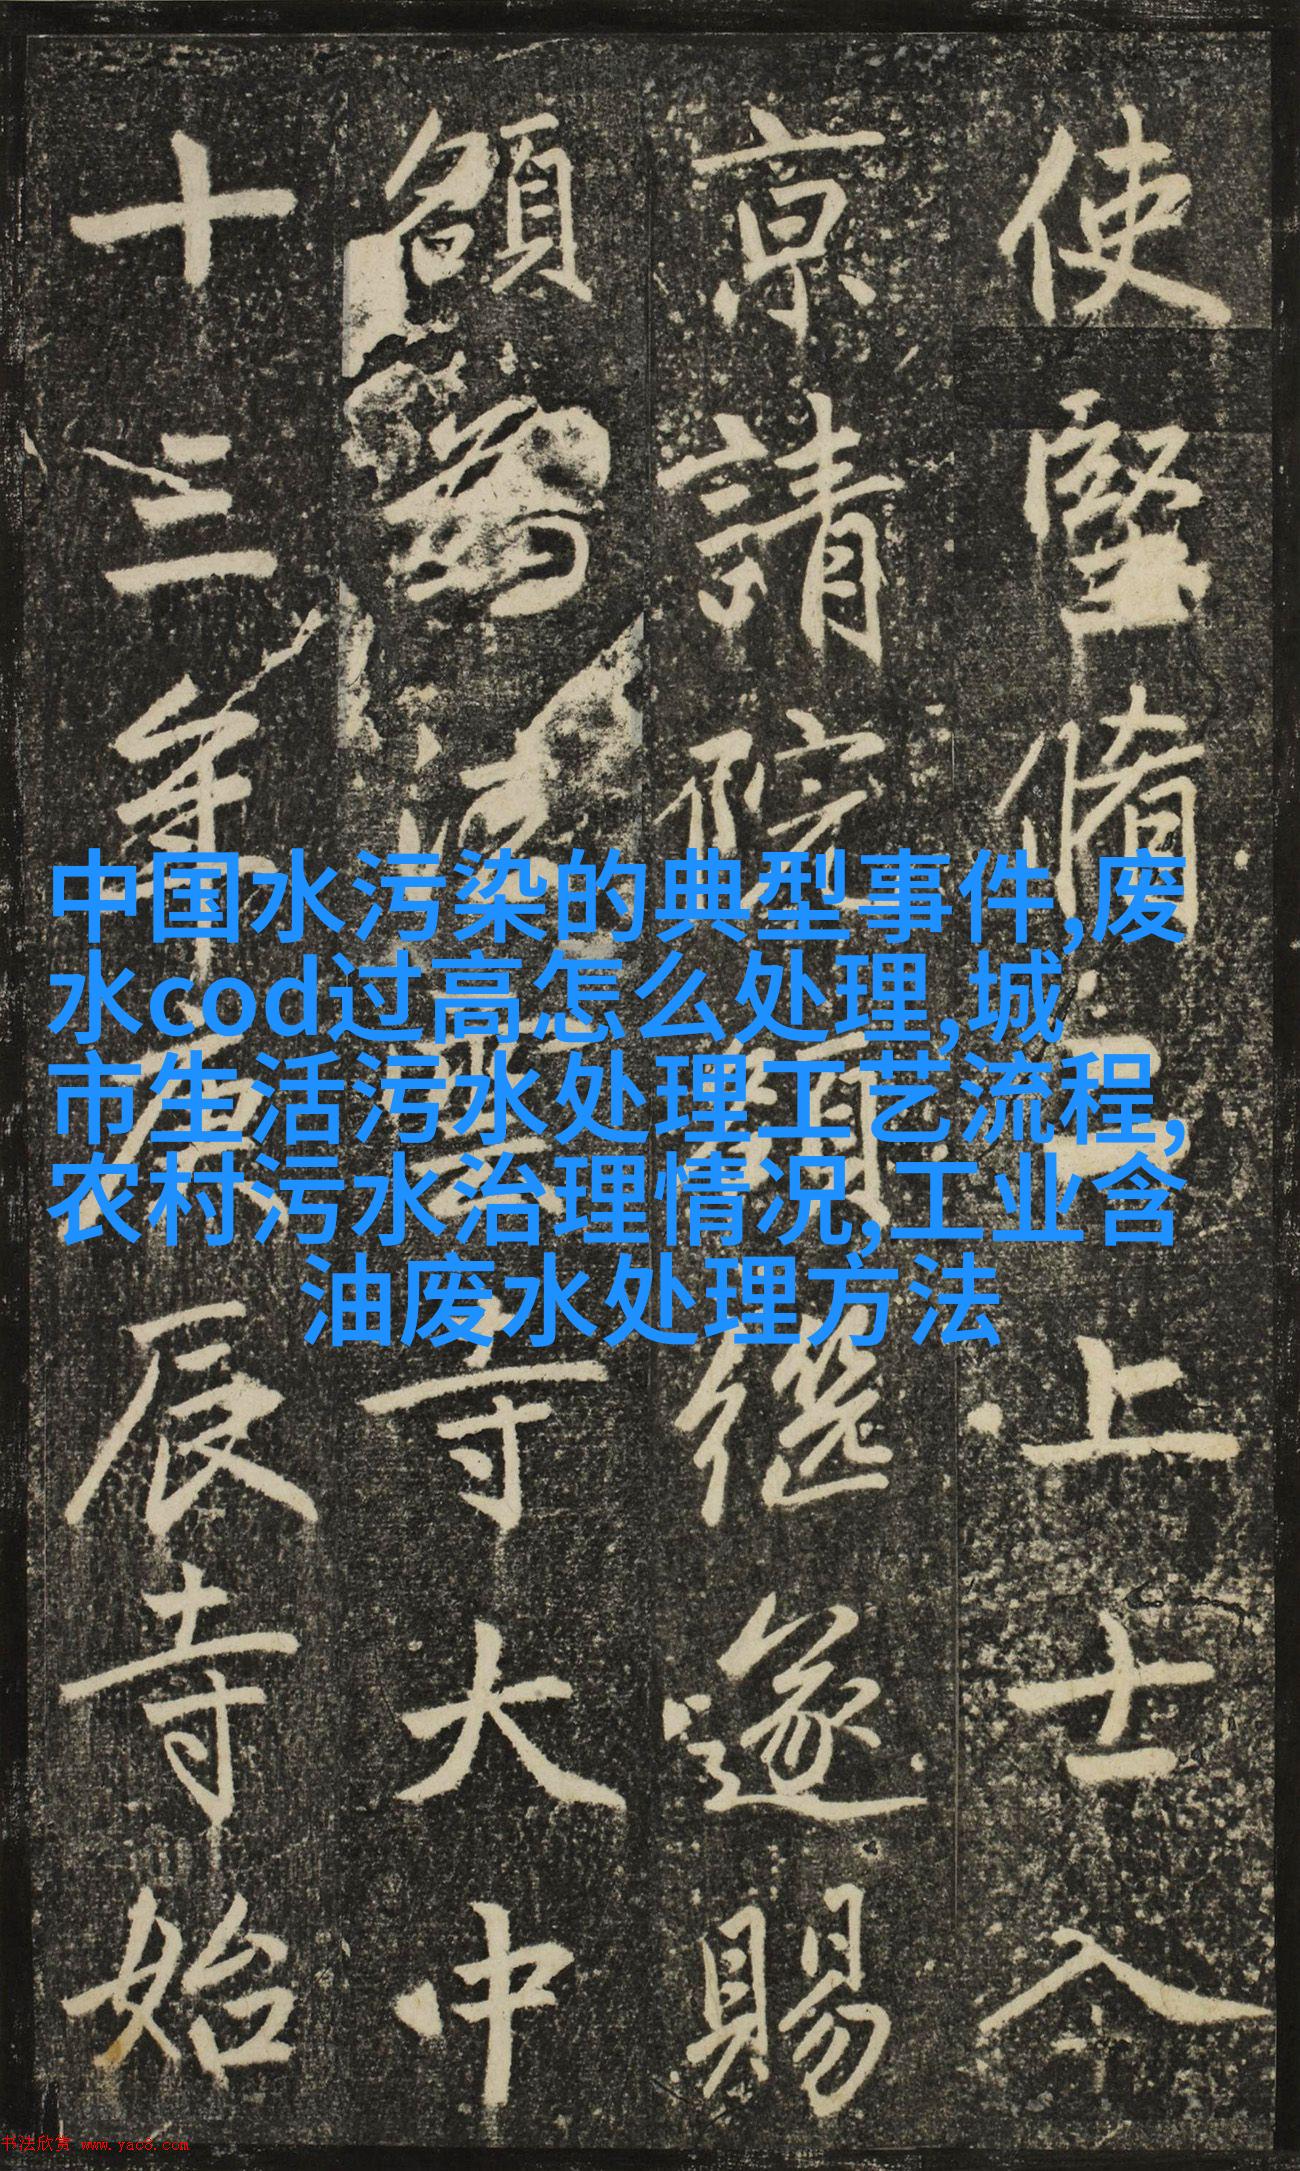 使堅脩上士入
京請院額繼遂賜
額為寺大中
十三年庚辰寺始
中国水污染的典型事件,废
水cod过高怎么处理,城
市生活污水处理工艺流程,
农村污水治理情况,工业含
油废水处理方法
书法欣赏 www.yac8.com